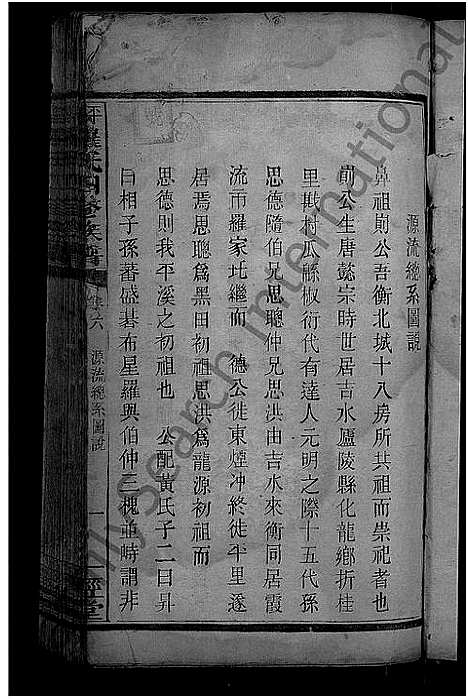 源流總系圖說
鼻祖則公吾衡北城十八房所共祖而崇祀者也
則公生唐懿宗時世居吉水廬陵縣化龍鄉折桂
里戢村瓜緜椒衍代有達人元明之際十五代孫
思德隨伯兄思聰仲兄思洪由吉水來衡同居霞
流市羅家圫繼而 德公徙東煙冲終徙平里遂
居焉思聰為黑田初祖思洪為龍源初祖而
思德則我平溪之初祖也 公配黃氏子二曰昇
曰相子孫蕃盛碁布星羅與伯仲三槐並峙謂非
羅氏四修族譜
卷六 源流總系圖說 一
經堂
FamilySearch International